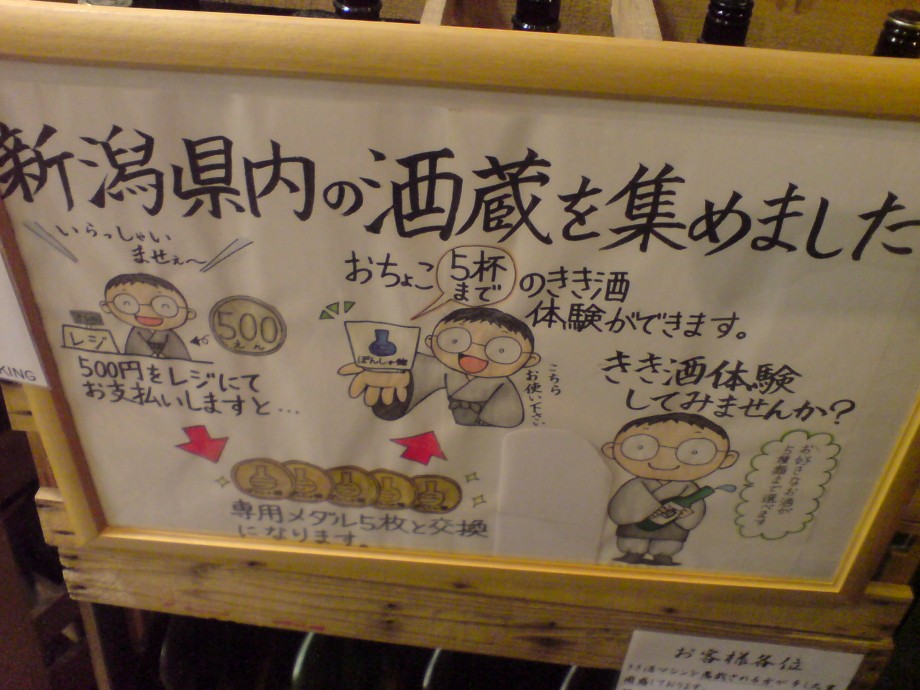 新潟県内の酒蔵を集めました
いらっしゃい
ませぇ〜
レジ
500
えん
500円をレジにて
お支払いしますと…
おちょこ
5杯
まで
のきき酒
体験ができます。
ぽんしゅ館
こちら
お使い下さい
専用メダル5枚と交換
になります。
きき酒体験
してみませんか?
お好きなお酒が
5種類まで選べます
KING
お客様各位